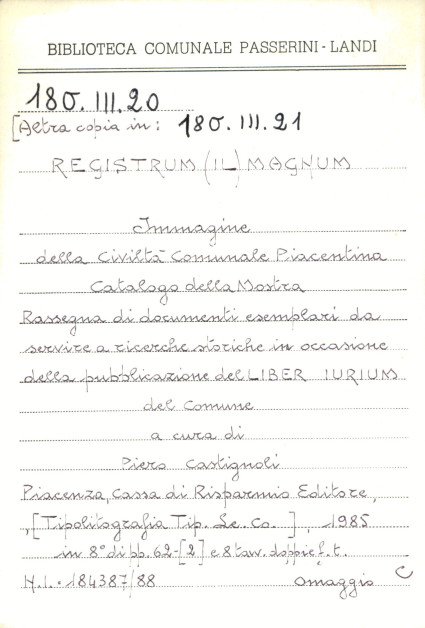 BIBLIOTECA COMUNALE PASSERINI-LANDI
180.III.20
[Altra copia in: 180.III.21
REGISTRUM (IL) MAGNUM
Immagine
della Civiltà Comunale Piacentina
Catalogo della Mostra
Rassegna di documenti esemplari da
servire a ricerche storiche in occasione
della pubblicazione del LIBER IURIUM
del Comune
a cura di
Piero Castignoli
Piacenza, Cassa di Risparmio Editore,
,[Tipolitografia Tip. Le. Co. ], 1985
in 8° di pp. 62-[2] e 8 tav. doppie f. t.
N.I. 184387/88 omaggio C